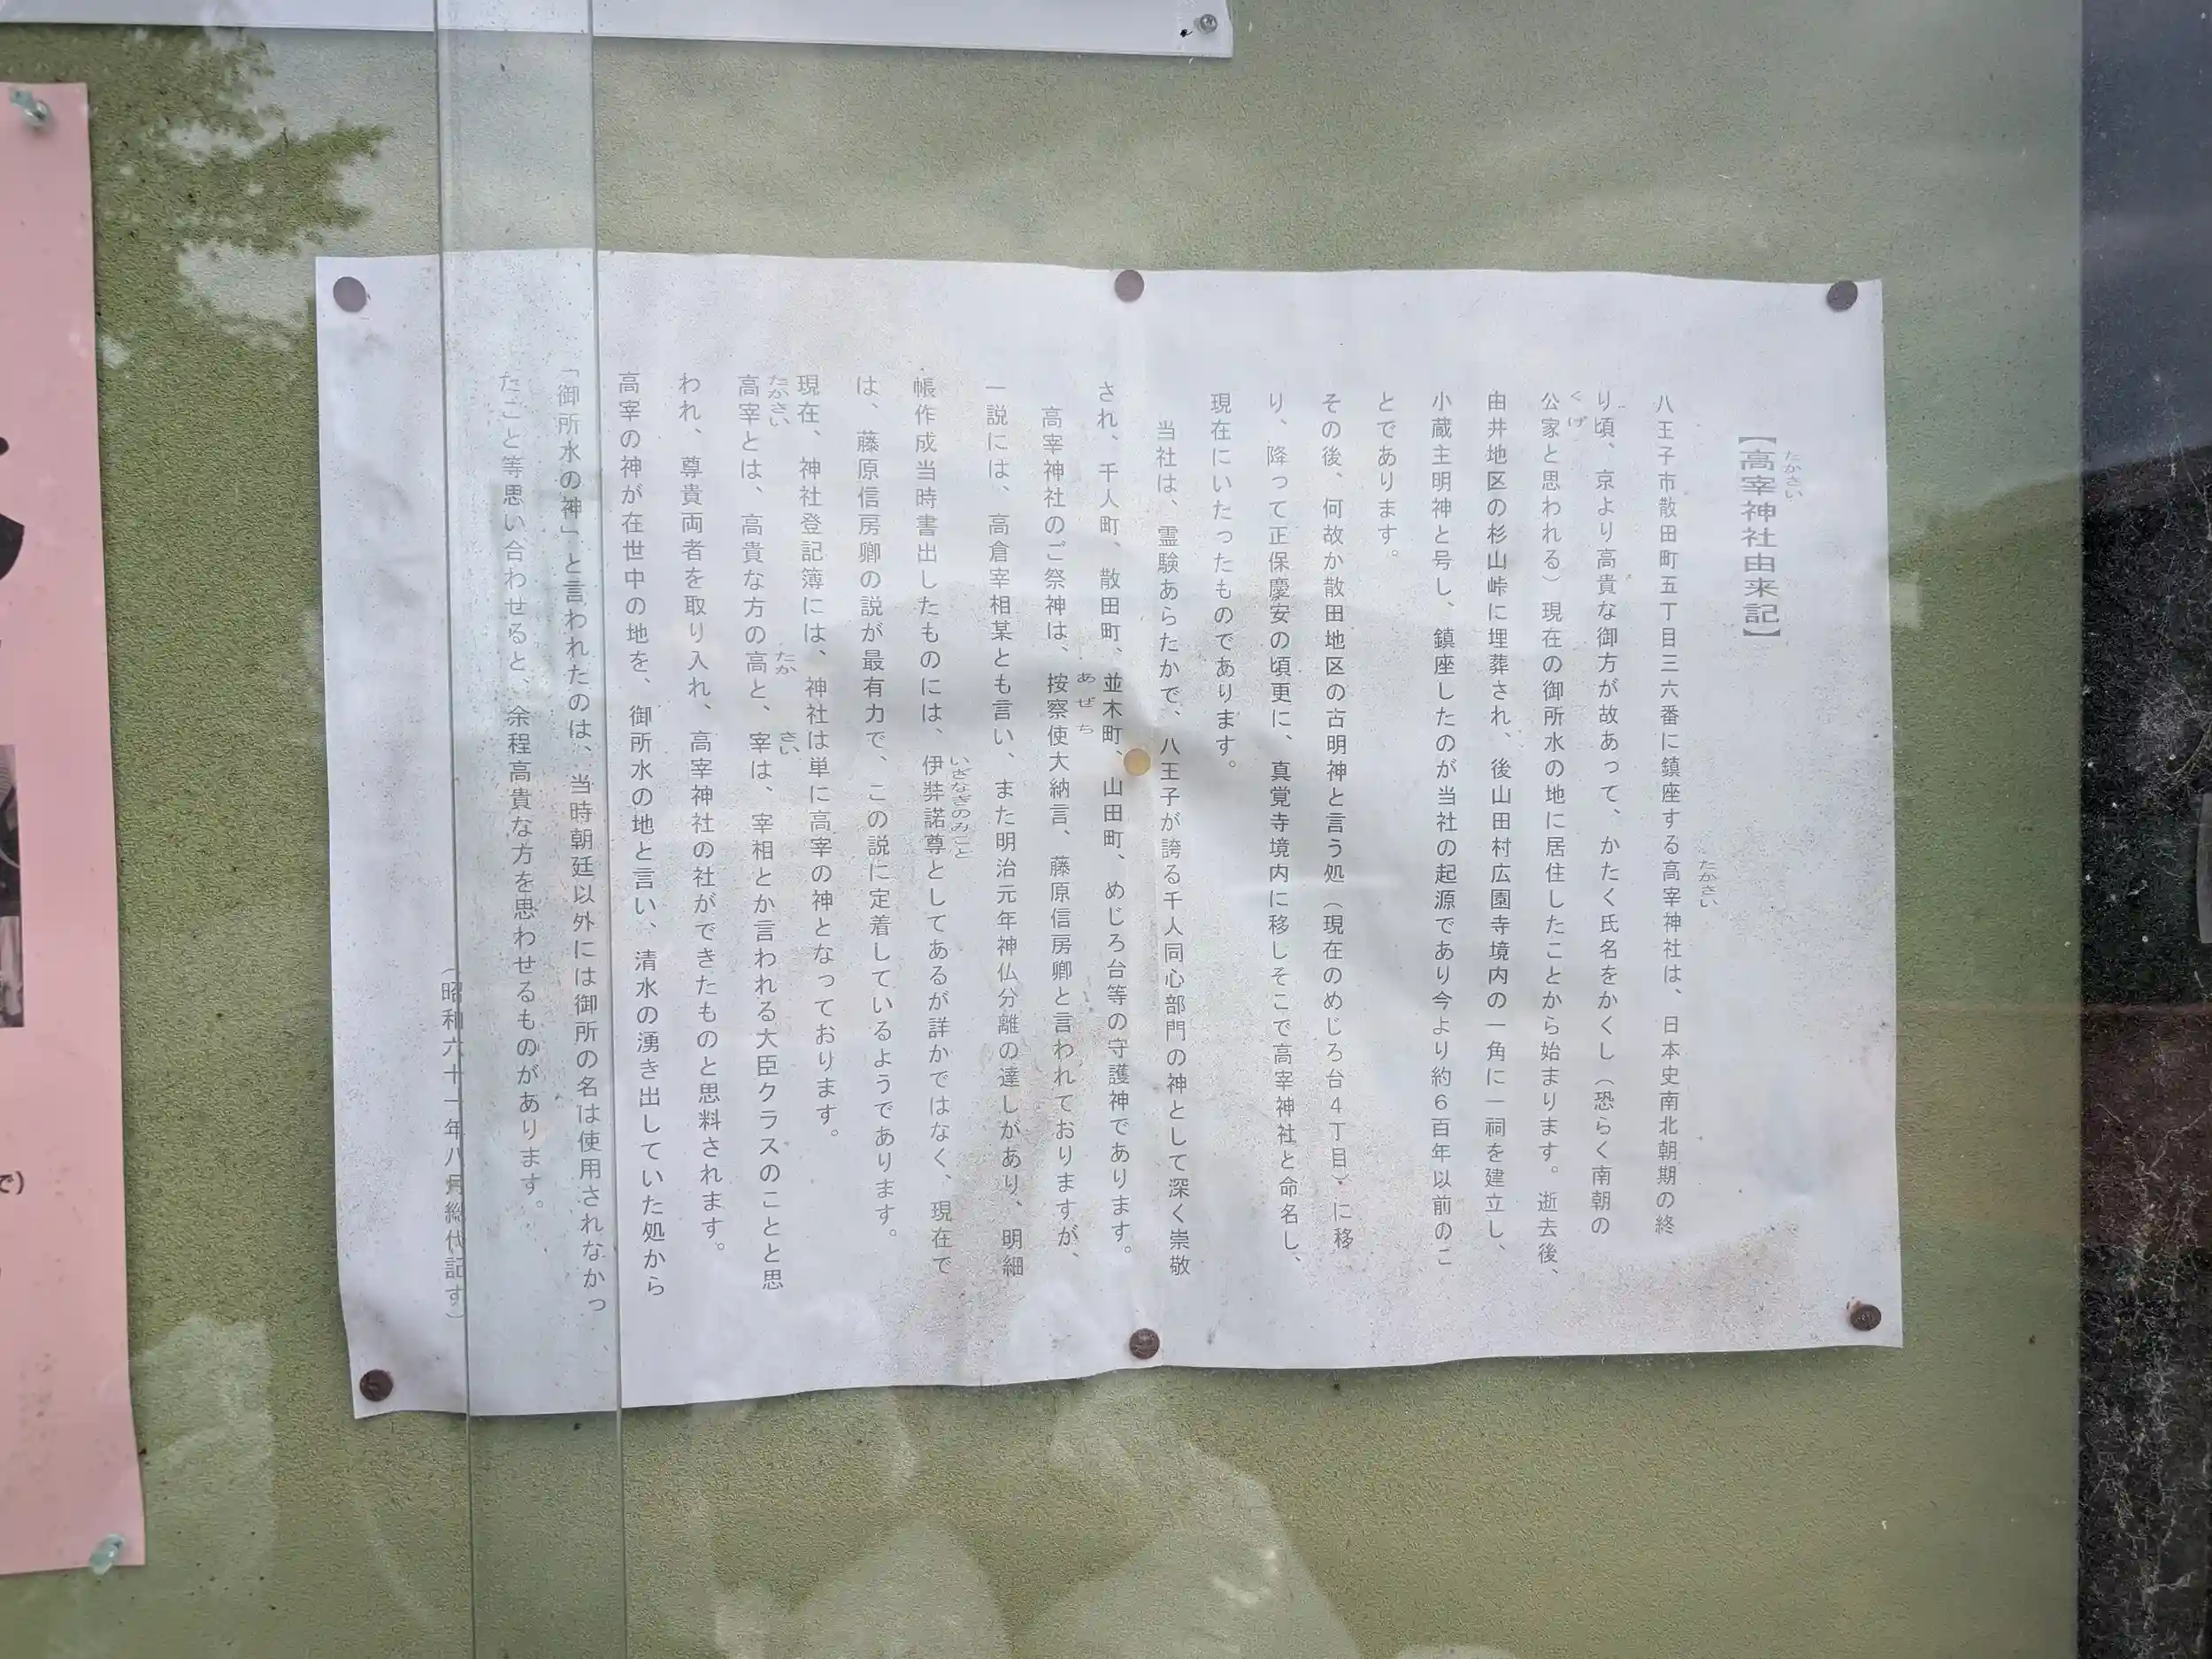 【高宰神社由来記】
たかさい
八王子市散田町五丁目三六番に鎮座する高宰神社は、日本史南北朝期の終
たかさい
り頃、京より高貴な御方が故あって、かたく氏名をかくし（恐らく南朝の
公家と思われる）現在の御所水の地に居住したことから始まります。逝去後、
くげ
由井地区の杉山峠に埋葬され、後山田村広園寺境内の一角に一祠を建立し、
小蔵主明神と号し、鎮座したのが当社の起源であり今より約６百年以前のこ
とであります。
その後、何故か散田地区の古明神と言う処（現在のめじろ台４丁目）、に移
り、降って正保慶安の頃更に、真覚寺境内に移しそこで高宰神社と命名し、
現在にいたったものであります。
当社は、霊験あらたかで、八王子が誇る千人同心部門の神として深く崇敬
され、千人町、散田町、並木町、山田町、めじろ台等の守護神であります。
高宰神社のご祭神は、按察使大納言、藤原信房卿と言われておりますが、
あぜち
一説には、高倉宰相某とも言い、また明治元年神仏分離の達しがあり、明細
帳作成当時書出したものには、伊弉諾尊としてあるが詳かではなく、現在で
いざなぎのみこと
は、藤原信房卿の説が最有力で、この説に定着しているようであります。
現在、神社登記簿には、神社は単に高宰の神となっております。
高宰とは、高貴な方の高と、宰は、宰相とか言われる大臣クラスのことと思
たかさい たか さい
われ、尊貴両者を取り入れ、高宰神社の社ができたものと思料されます。
高宰の神が在世中の地を、御所水の地と言い、清水の湧き出していた処から
「御所水の神」と言われたのは、当時朝廷以外には御所の名は使用されなかっ
たこと等思い合わせると、余程高貴な方を思わせるものがあります。
（昭和六十一年八月総代記す）
で）